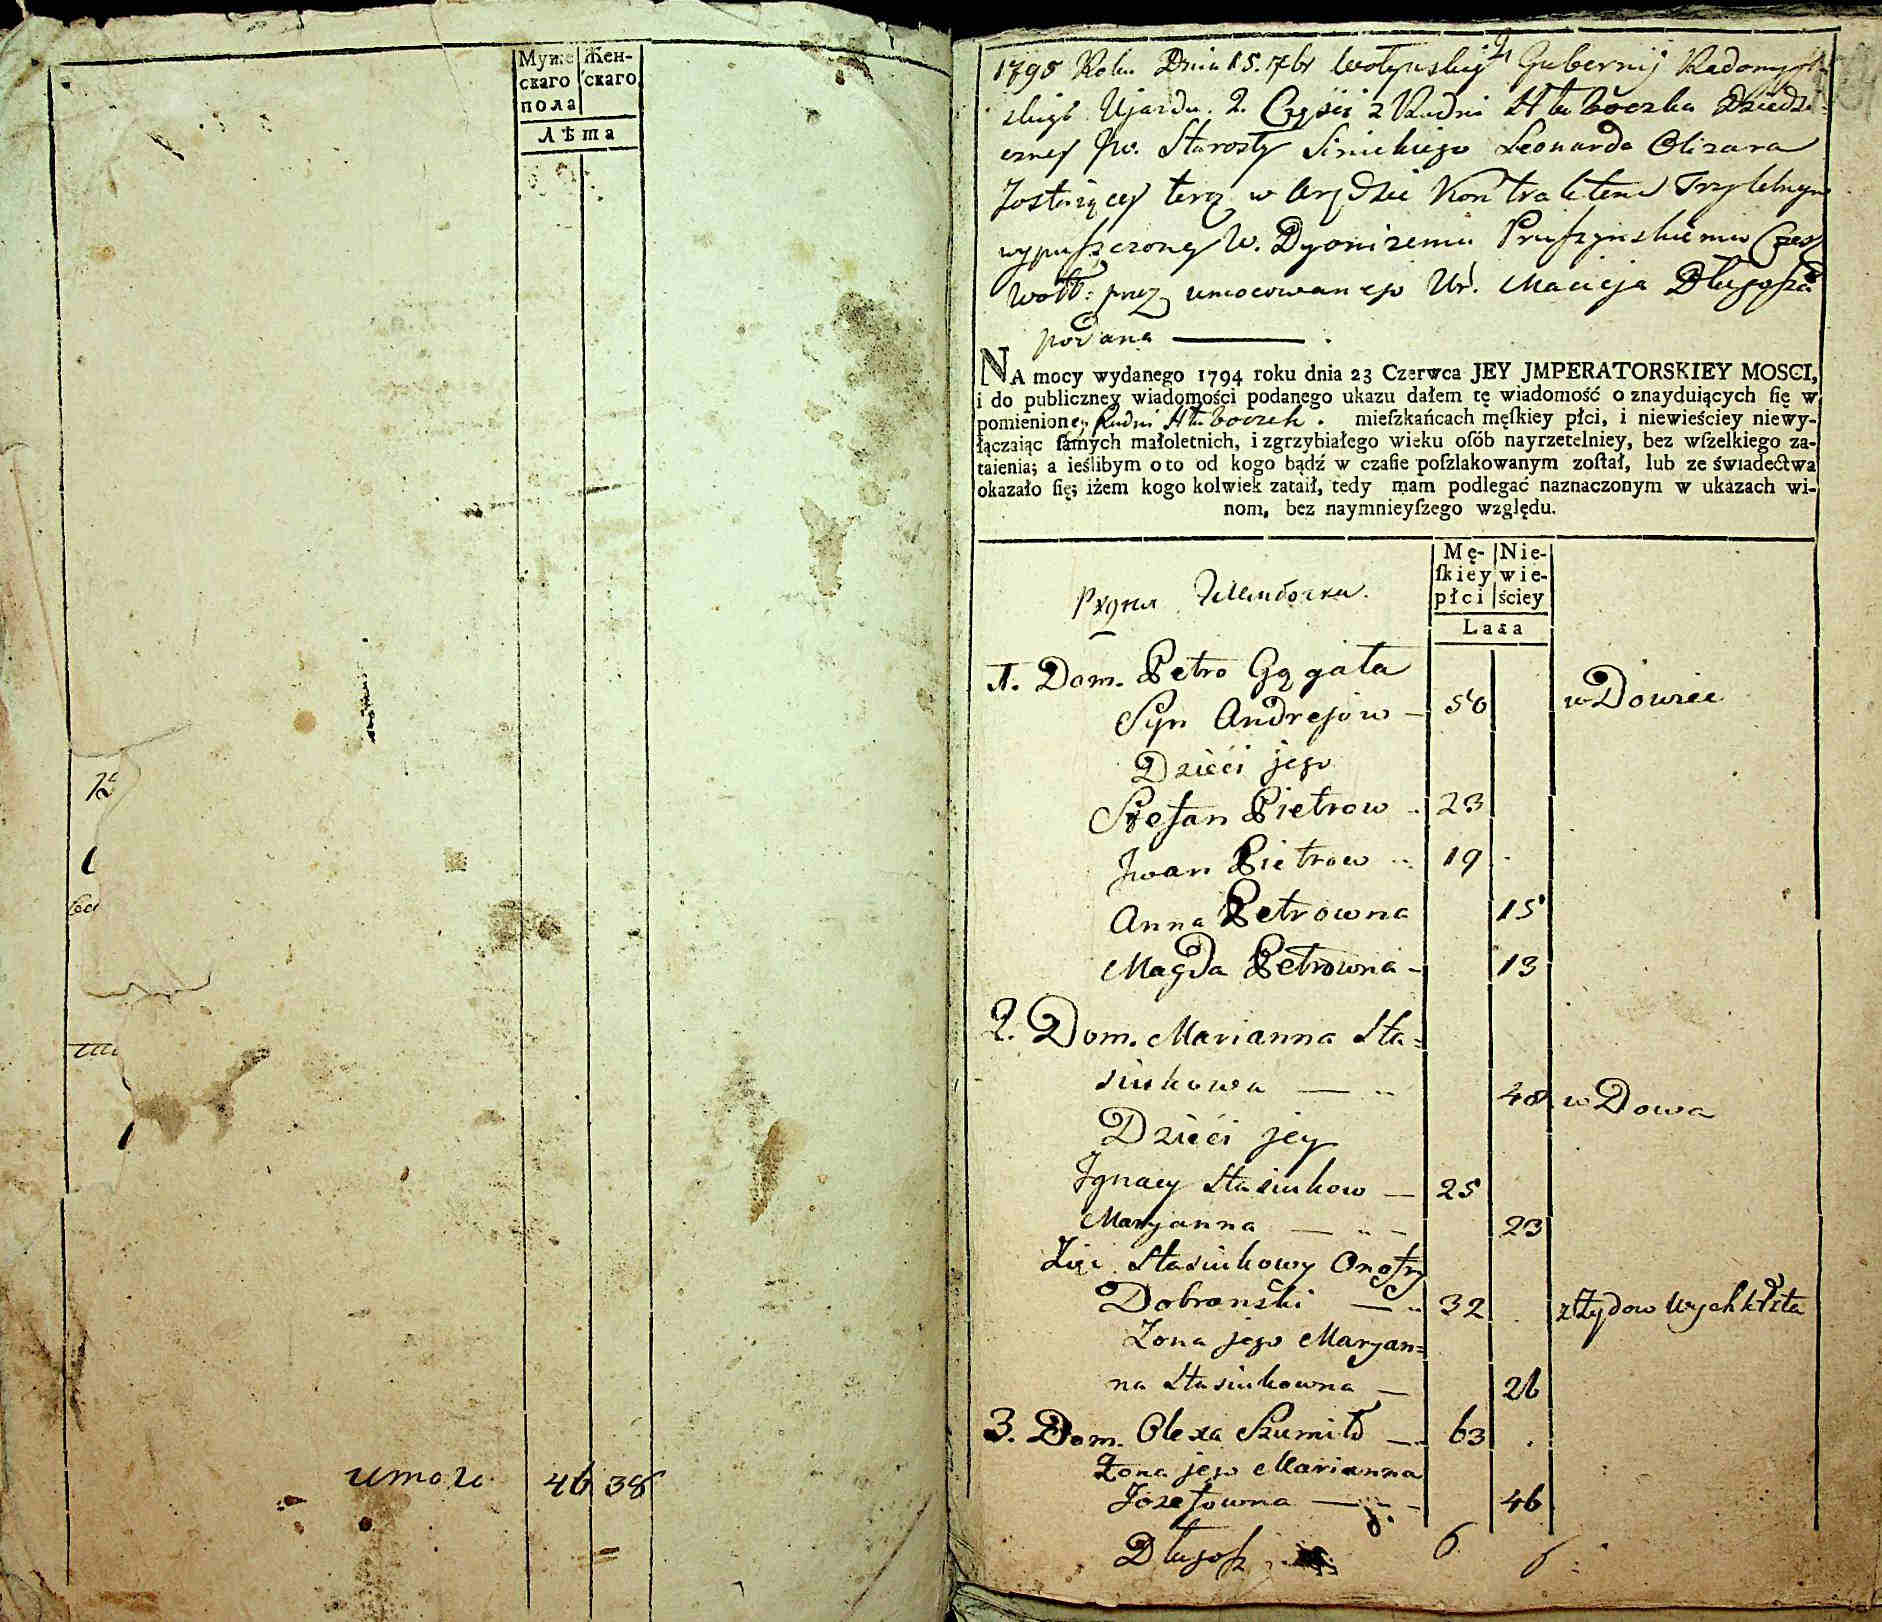 Муже Жен-
скаго скаго
пола
Лѣта
итого 46 38
1795 Roku Dnia 15. 7br Wołynskiy Gubernij Radomysl-
skiego Ujazdu. 2. Częsci z Rudni Hłuboczka Dziedzi-
czney Jw. Starosty Sinickiego Leonarda Olizara
Zostaiącey teraz w Arędzie Kontraktem Trzyletnym
wypuszczoney W. Dyonizemu Pruszynskiemu Czes
Woł: przez umocowanego Ur. Macieja Długosza
podana
NA mocy wydanego 1794 roku dnia 23 Czerwca JEY JMPERATORSKIEY MOSCI,
i do publiczney wiadomości podanego ukazu dałem tę wiadomość o znayduiących ſię w
pomienioney Rudni Hłuboczek. mieſzkańcach męſkiey płci, i niewieściey niewy-
łączaiąc ſamych małoletnich, i zgrzybiałego wieku oſób nayrzetelniey, bez wſzelkiego za-
taienia; a ieślibym o to od kogo bądź w czaſie poſzlakowanym zoſtał, lub ze świadectwa
okazało ſię; iżem kogo kolwiek zataił, tedy mam podlegać naznaczonym w ukazach wi-
nom, bez naymnieyſzego względu.
Mę- Nie-
ſkiey wie-
płci ściey
Lata
Рудня
1. Dom. Petro Gągała
Syn Andrejow 56 wDowiec
Dzieci jego
Stefan Pietrow 23
Jwan Pietrow 19
Anna Petrowna 15
Magda Petrowna 13
2. Dom. Marianna Sta=
siukowa 48 wDowa
Dzieci jey
Jgnacy Stasiukow 25
Maryanna 23
Zięć Stasiukowy Onofry
Dobranski 32 z Żydow Wychkszta
Zona jego Maryan=
na Stasiukowna 26
3. Dom. Olexa Szumiło 63
Zona jego Marianna
Jozefowna 46
Długosz 6 6